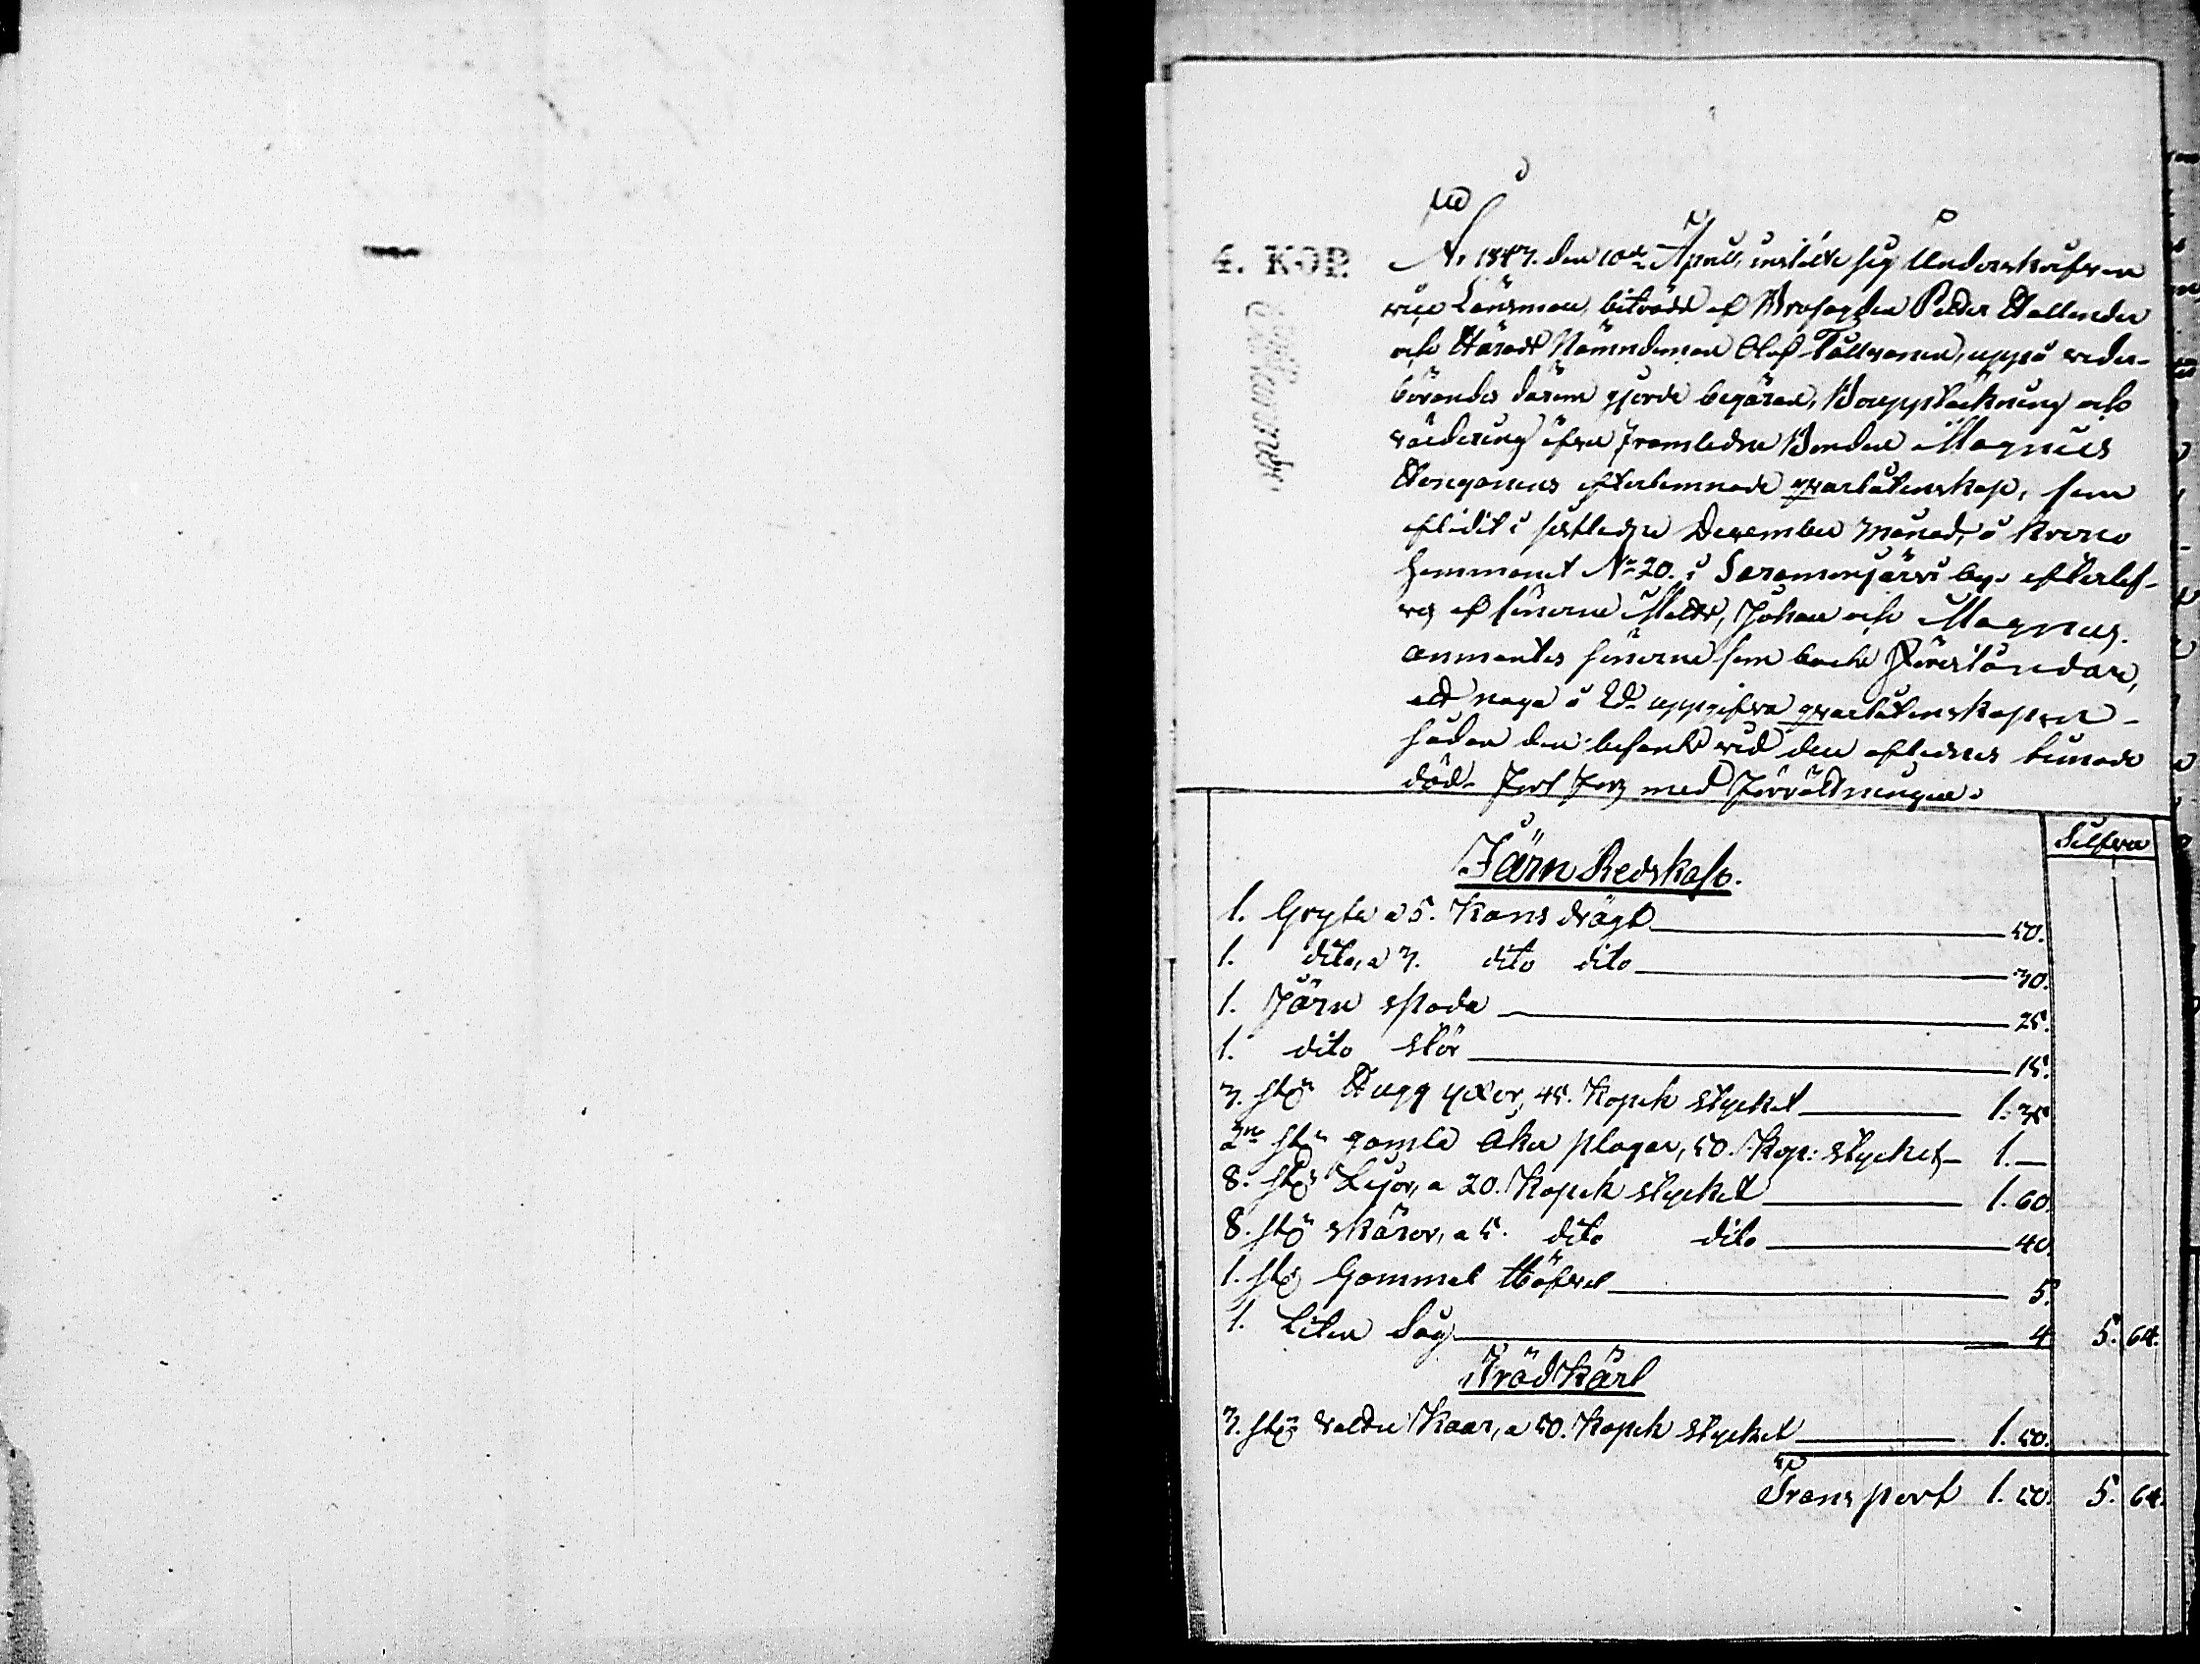 4. KOP.
Ao 1847. den 10de April, instälte sig Underskrefven
vice Länsman, biträdd af Brofogden Petter Hallender
och Härads Nämndeman Olof Tallvanen, uppå veder-
börandes därom gjorde begäran, Bouppteckning och
värdering öfver framledne Bonden Magnus
efterlemnade qvarlåtenskap, som
aflidit i sistledne December månad, å Krono
hemmanet No 20. i Saramenjärvi by. efterlef-
vg af sönerne Matts, Johan och Magnus.
anmantes sönerne som boets Föreståndare,
att noga å Ed uppgifva qvarlåtenskapen
sådan den befants vid den aflednes timade
död. Fort Foor med Förrättningen.
Silfver
Järn Redskap.
1. Gryta a 5. Kans drägt 50.
1. dito, a 3. dito dito 30.
1. Järn spada 25.
1. dito stör 15.
3. st Hugg yxor, 45. Kopek stycket 1. 35
2ne st gamla Åker plogar, 50. Kop: stycket 1.—
8. st Lijor, a 20. Kopek stycket 1. 60.
8. st skäror, a 5. dito dito 40.
1. st Gammal Höfvel 5.
1. Liten Såg 4 5. 64.
Träd Kärl
3. st Kaar, a 50. Kopek stycket 1. 50.
Transport 1. 50. 5. 64.